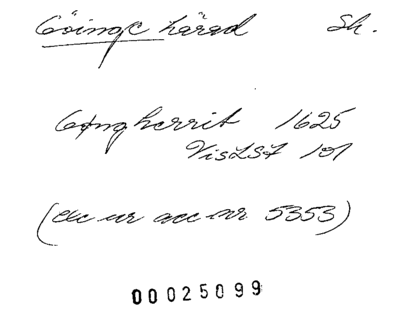 Göinge härad Sk.
Gøngherrit 1625
VisLSF 101
(exc ur acc nr 5353)
00025099